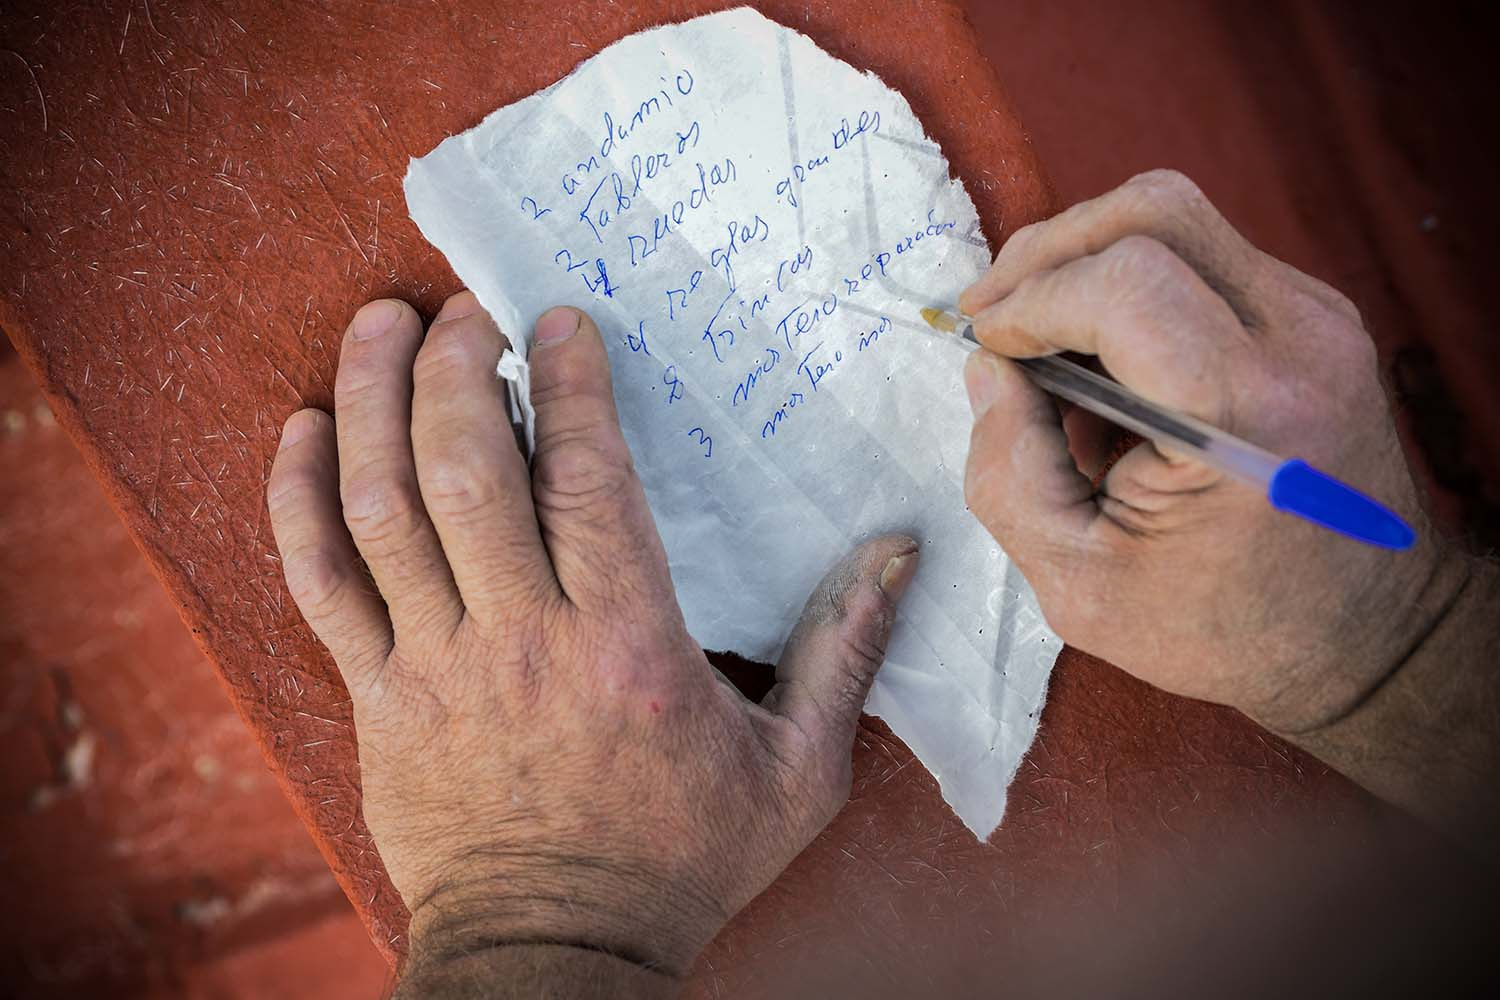 2 andamio
2 Tableros
4 ruedas
4 reglas grandes
8 Trincas
3 morTero reparación
morTero